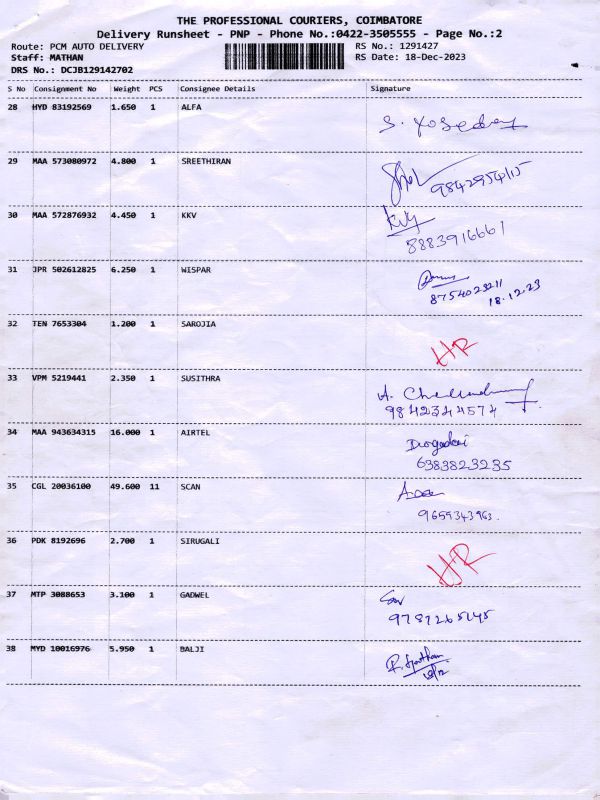 THE PROFESSIONAL COURIERS, COIMBATORE
Delivery Runsheet - PNP - Phone No.:0422-3505555 - Page No.:2
Route: PCM AUTO DELIVERY RS No.: 1291427
Staff: MATHAN RS Date: 18-Dec-2023
DRS No.: DCJB129142702
S No Consignment No Weight PCS Consignee Details Signature
28 HYD 83192569 1.650 1 ALFA
29 MAA 573080972 4.800 1 SREETHIRAN
30 MAA 572876932 4.450 1 KKV
KVG
8883916661
31 JPR 502612825 6.250 1 WISPAR
8754023211
18.12.23
32 TEN 7653304 1.200 1 SAROJIA
HR
33 VPM 5219441 2.350 1 SUSITHRA
9842344574
34 MAA 943634315 16.000 1 AIRTEL
6383823235
35 CGL 20036100 49.600 11 SCAN
9659343963.
36 PDK 8192696 2.700 1 SIRUGALI
HR
37 MTP 3088653 3.100 1 GADWEL
9787265145
38 MYD 10016976 5.950 1 BALJI
18/12